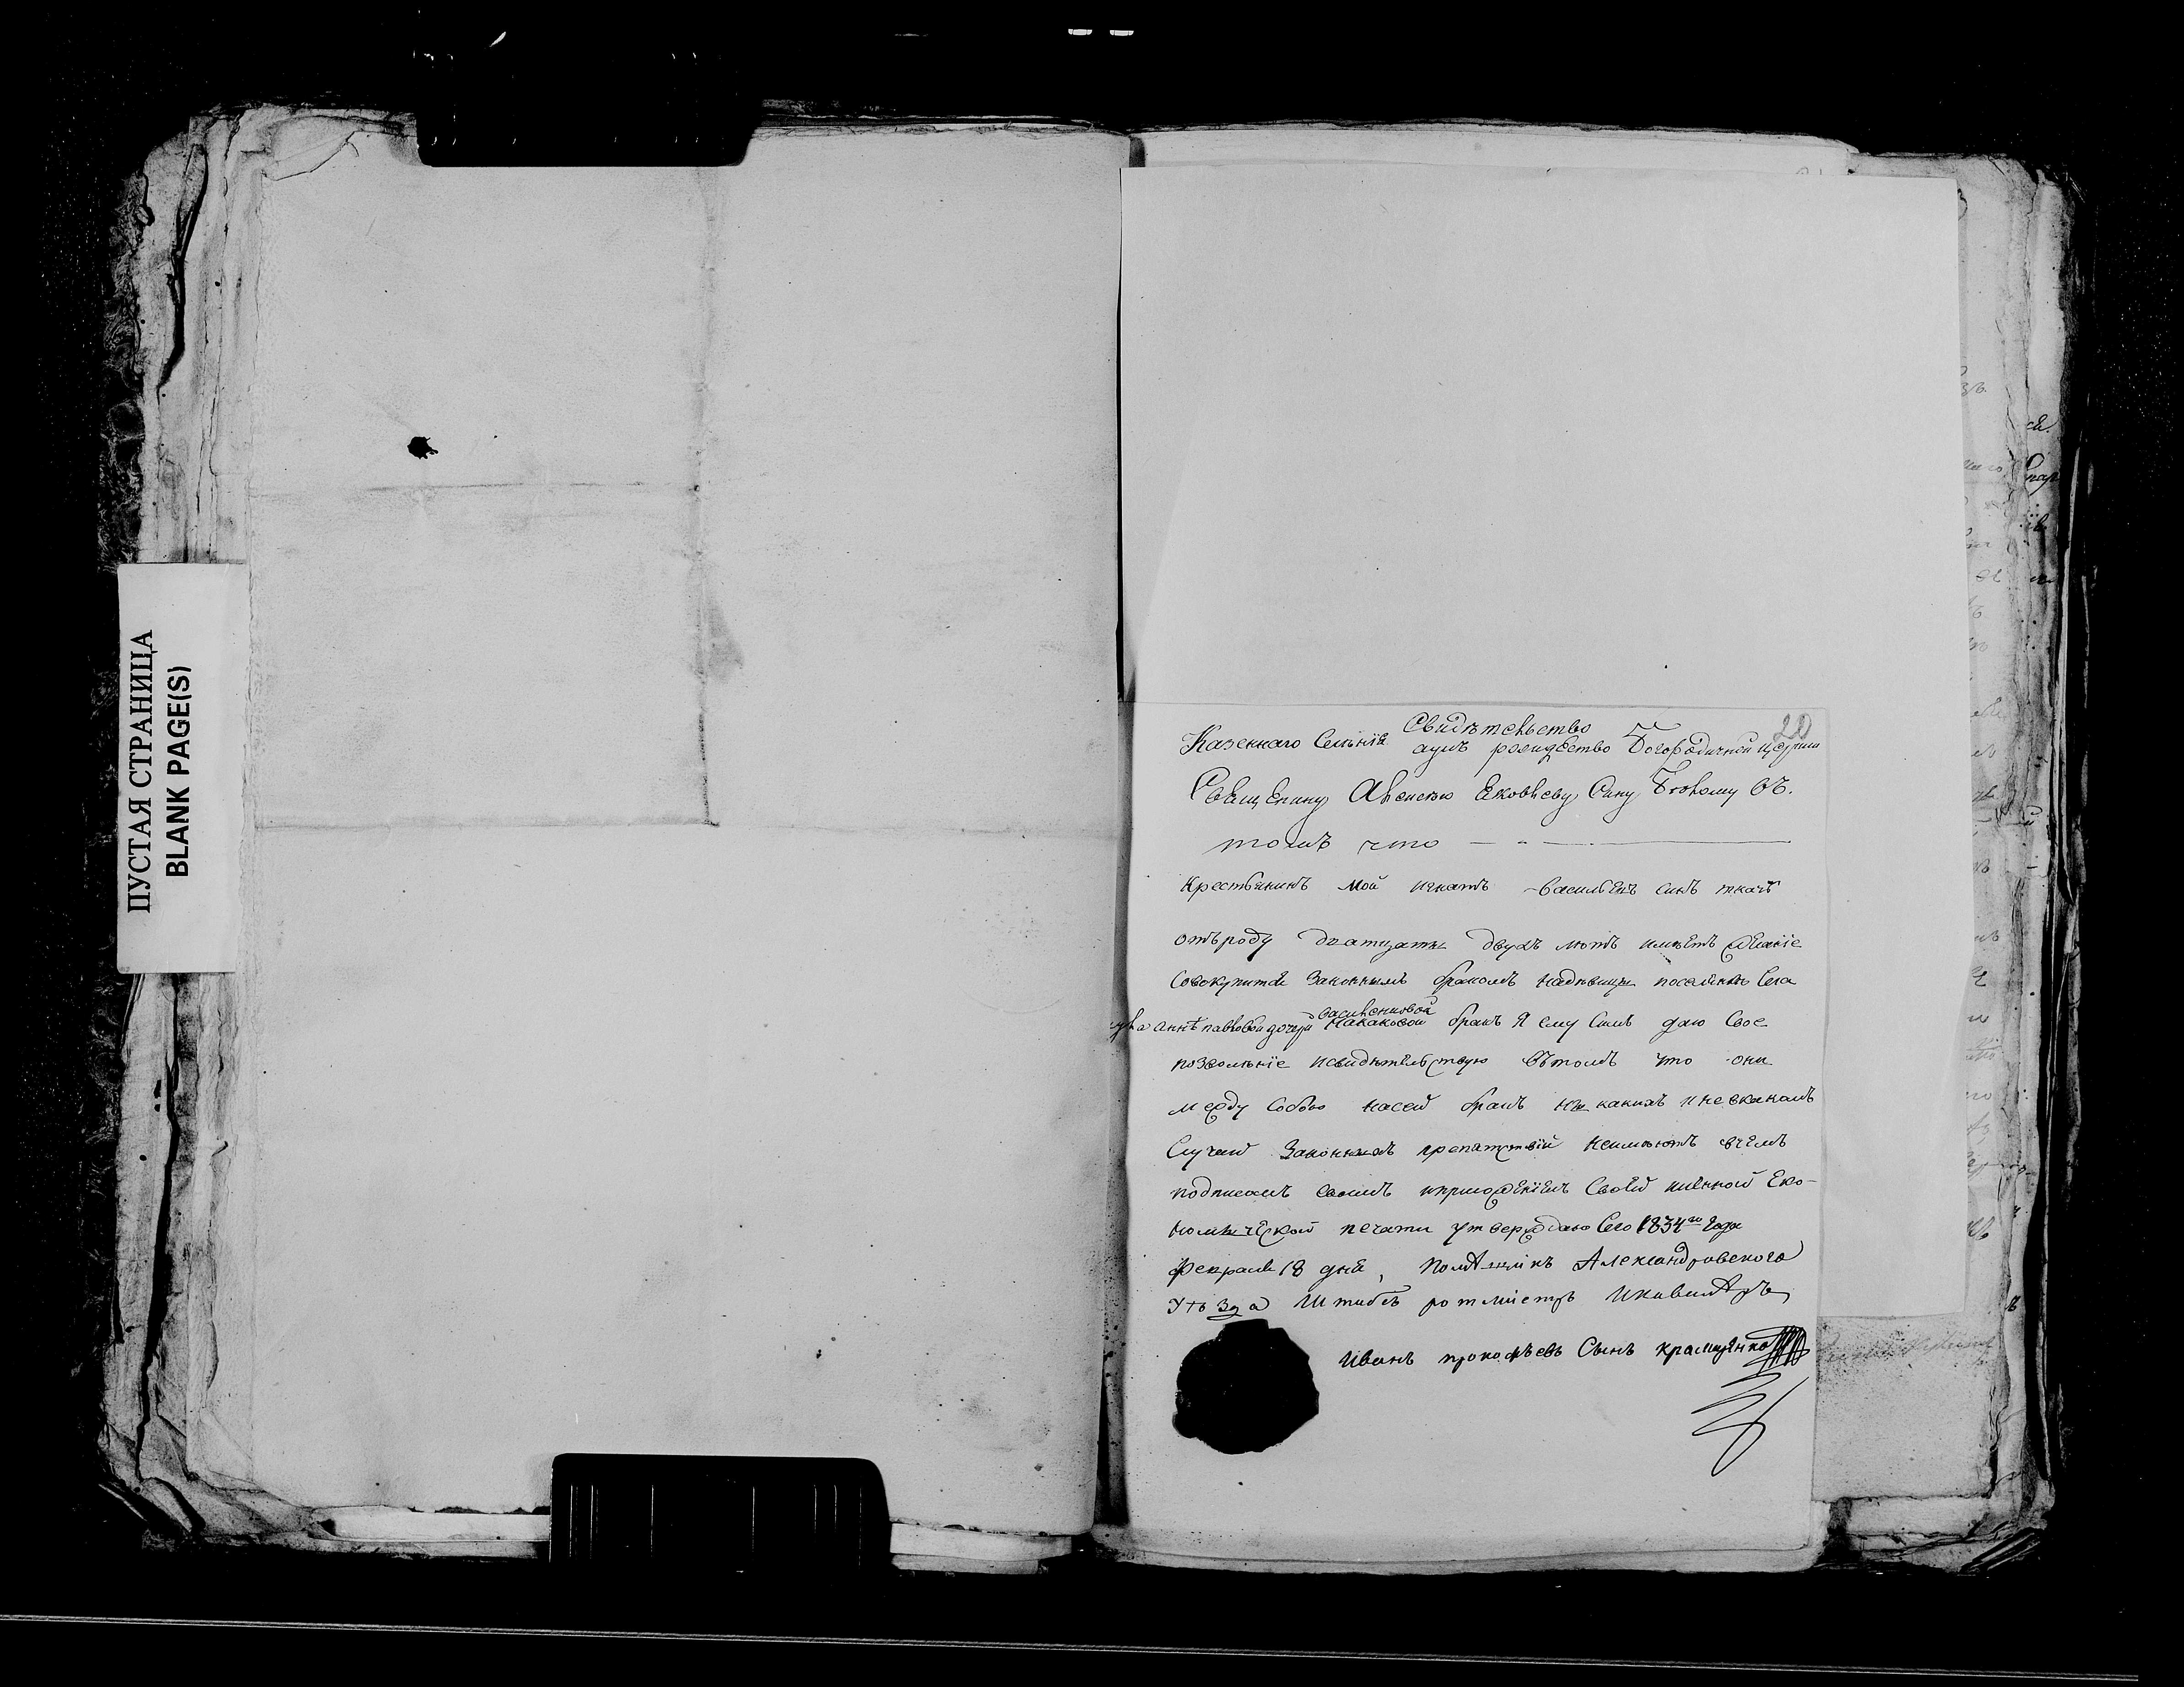 ПУСТАЯ СТРАНИЦА
BLANK PAGE(S)
20
Свидѣтельство
Казеннаго Селѣнія аулъ рождество Богородичной церкви
Священику Алексею Яковлеву Сину Бѣлому въ
томъ что
Крестьянинъ мой игнатъ Васильевъ синъ ткачъ
отъ роду дватцаты двухъ лѣтъ имѣетъ желаніе
Совокупится Законнымъ бракомъ надѣвицы Села
аннѣ павловой дочери василенковой бракъ Я ему Симъ даю Свое
позволѣніе исвидѣтельствую вътомъ что они
между Собою насей бракъ ни какихъ иневкакомъ
Случаи Законныхъ препятствий неимѣютъ вчемъ
подписомъ своимъ иприложѣніемъ Своей имѣнной Еко-
номической печати утверждаю Сего 1834го Года
Февраля 18 дня, помѣщикъ Александровского
Уѣзда Штабсъ ротмистръ Икавалѣръ
Иванъ прокофьевъ Сынъ